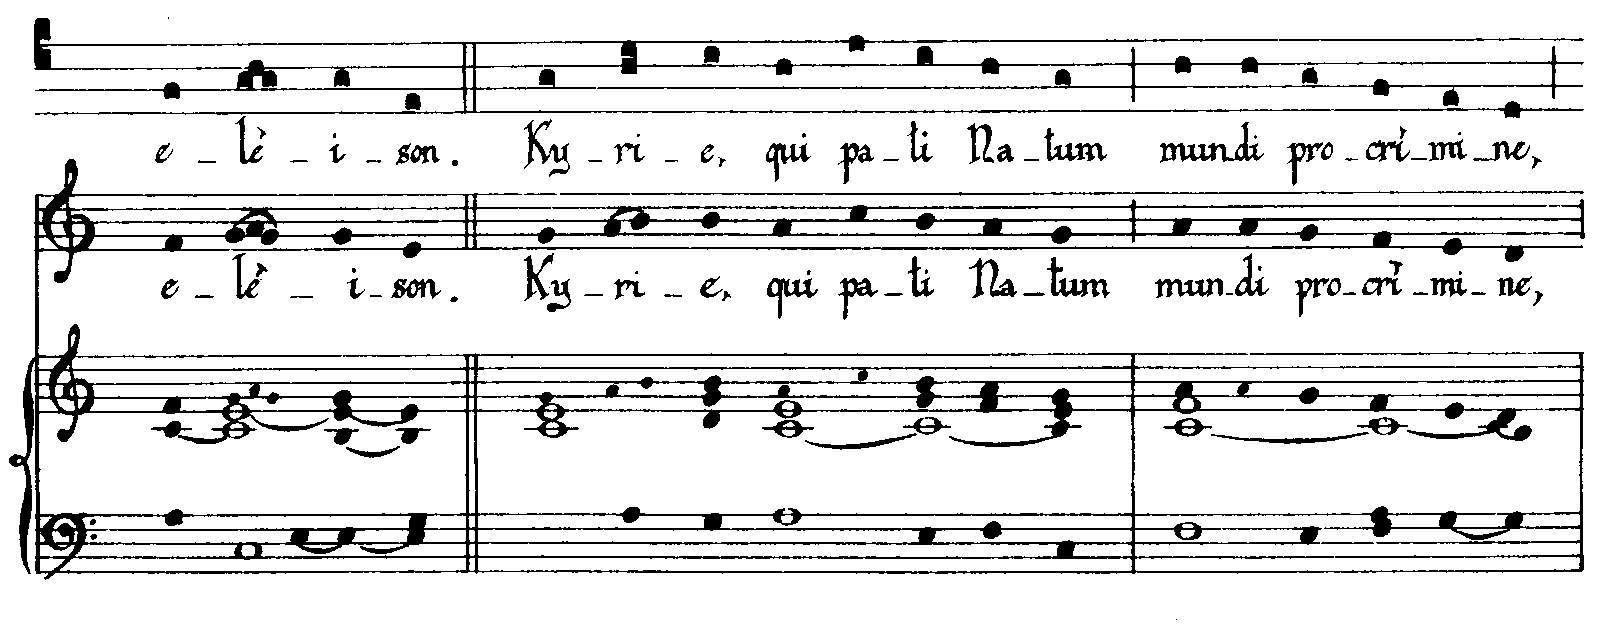 e _ lè _ i _ son. Ky _ ri _ e, qui pa _ ti Na _ tum mundi pro _ crì _ mi _ ne,
e _ lè _ i _ son. Ky _ ri _ e, qui pa _ ti Na _ tum mun _ di pro _ crì _ mi _ ne,